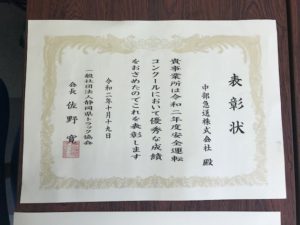 表彰状
中部急送株式会社 殿
貴事業所は令和二年度安全運転
コンクールにおいて優秀な成績
をおさめたのでこれを表彰します
令和二年十月十九日
一般社団法人静岡県トラック協会
会長 佐野寛